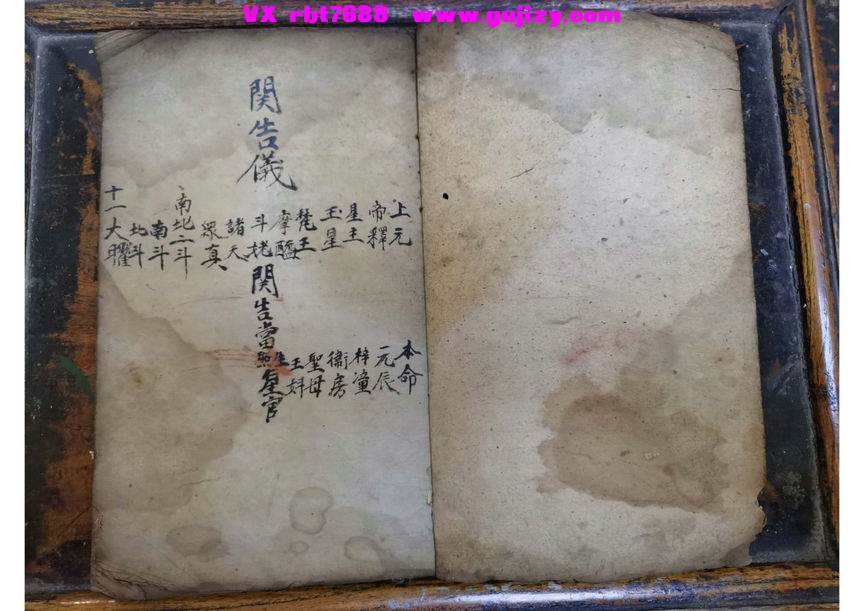 VX rbt7688 www.gujizy.com
関告儀
上元
帝釋
星主
玉星
梵王
摩醯
斗姥
諸天
眾真
南北二斗
南斗
北斗
十一大曜
関告當生照星官
本命
元辰
梓潼
衛房
聖母